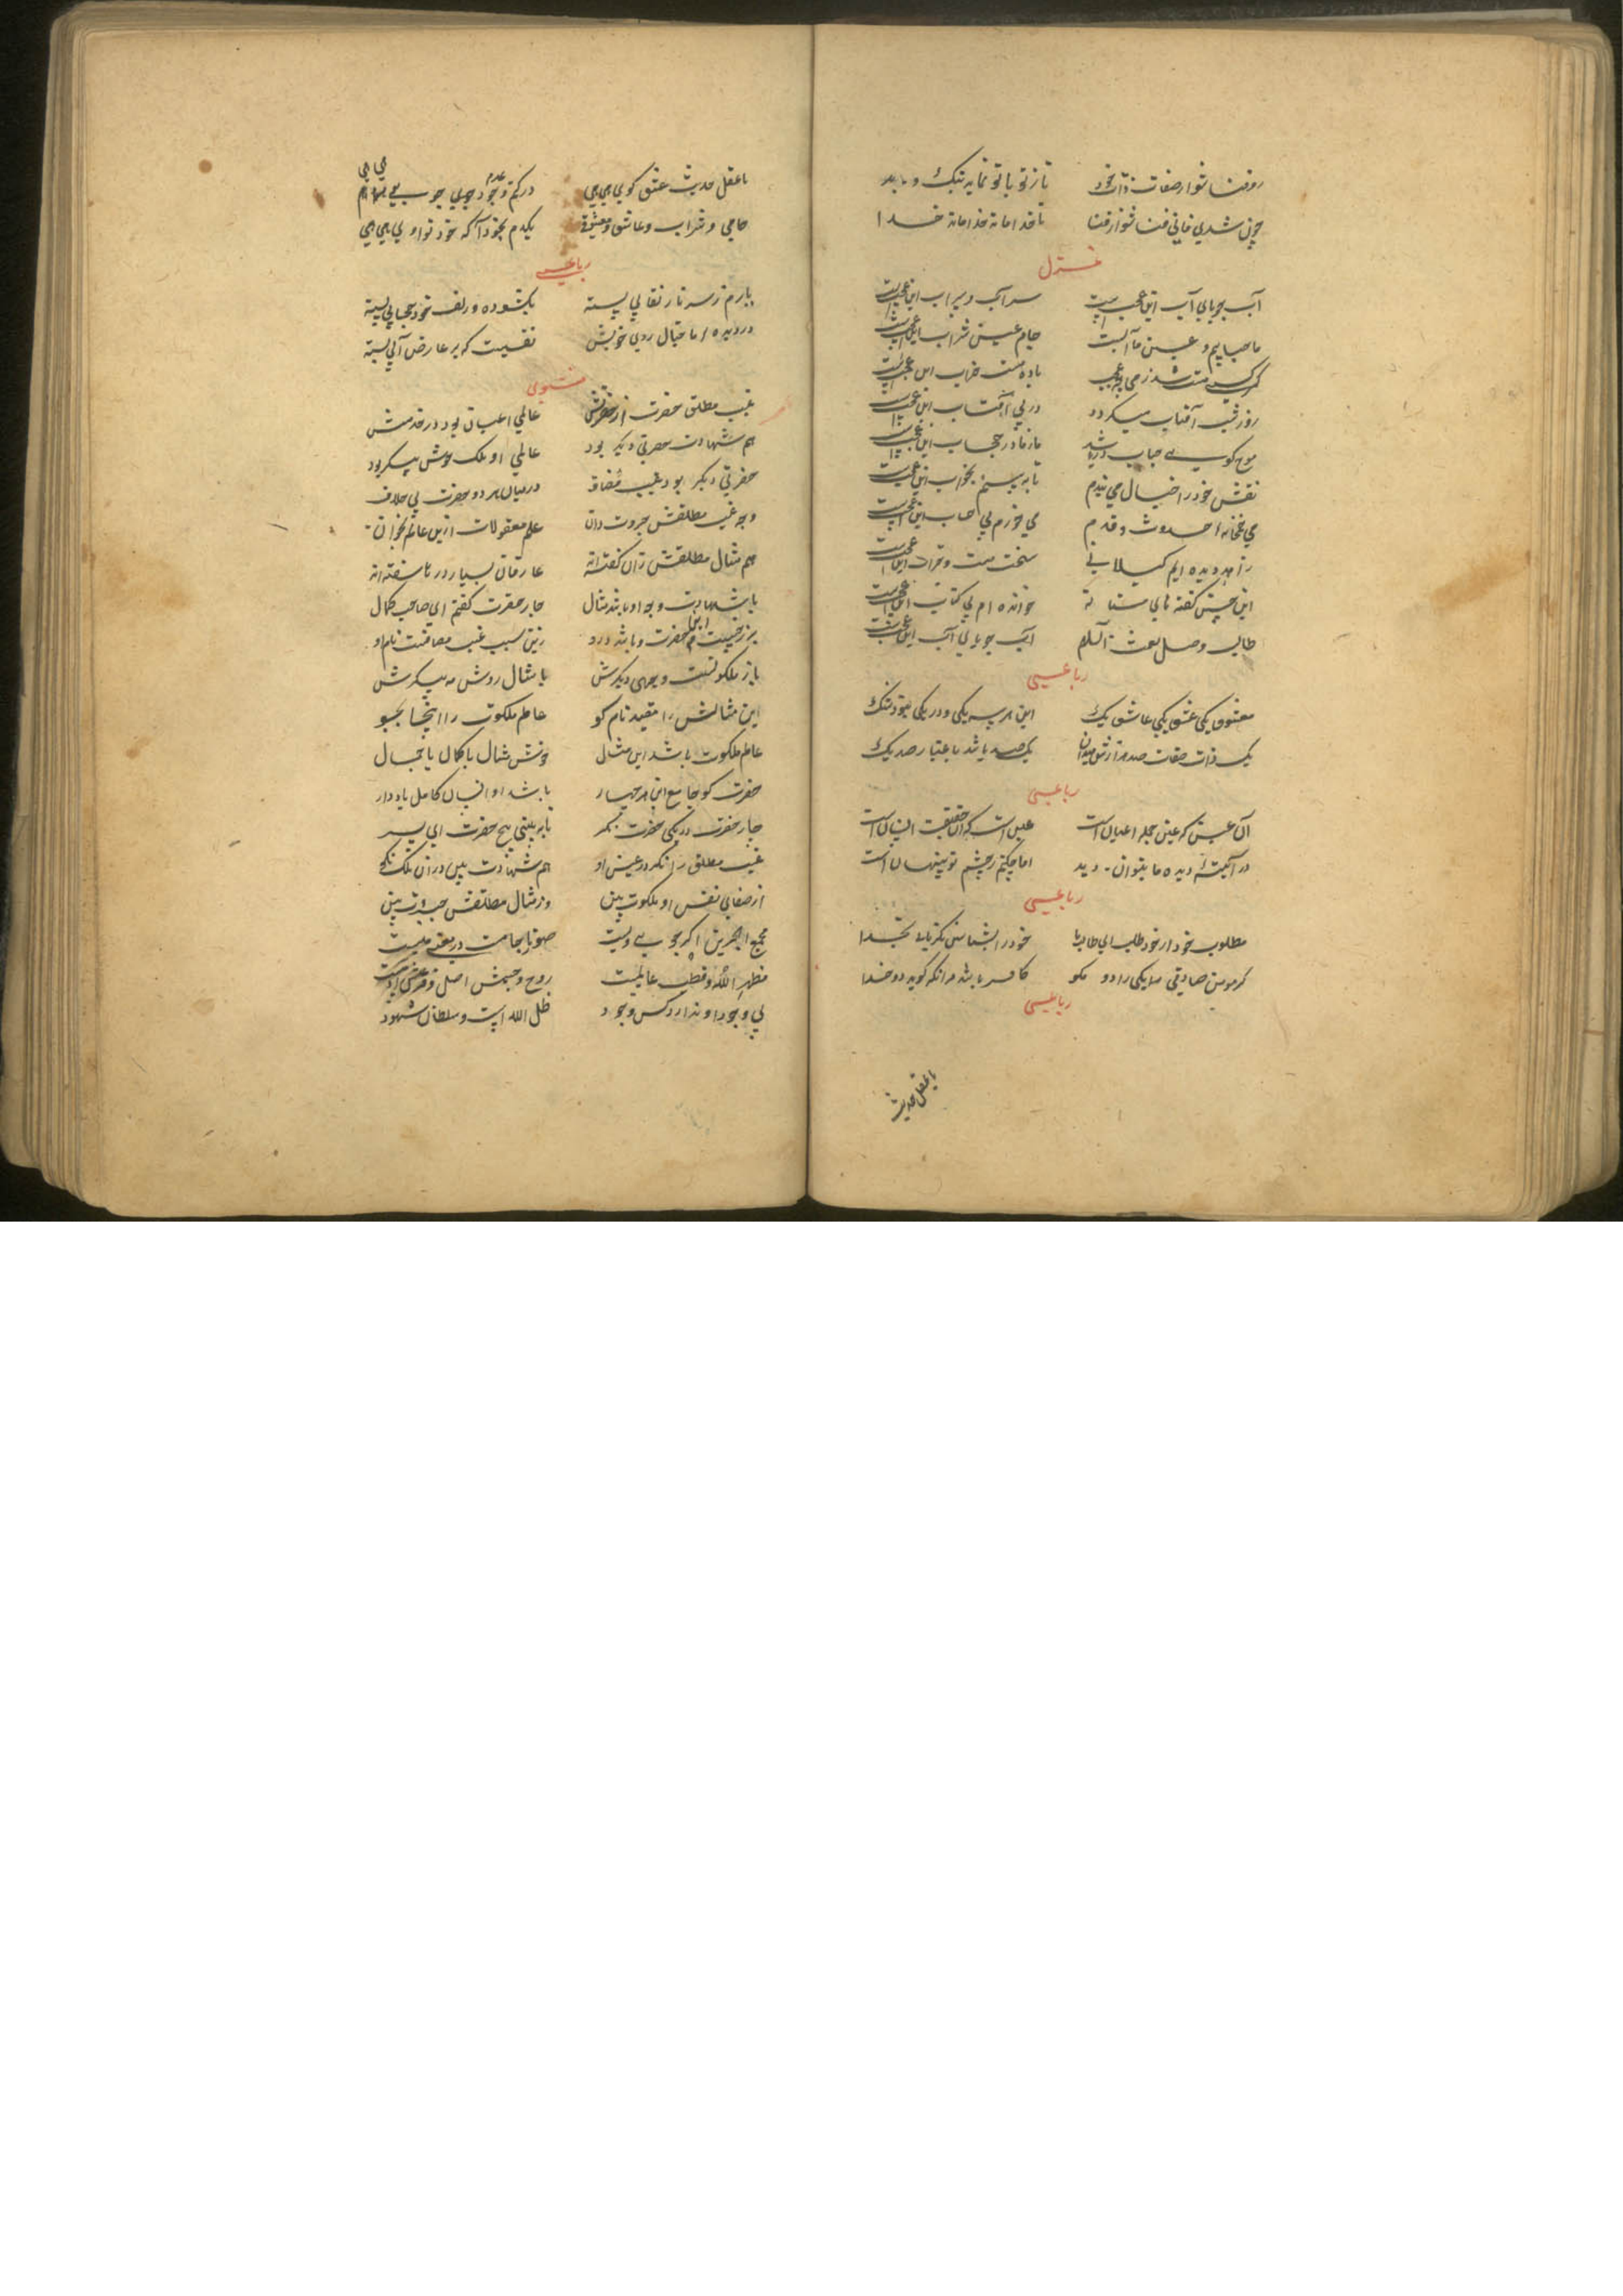 رو فنا شو از صفات ذات خود تا ز تو با تو نماید نیک و بد
چون شدی فانی فنا شو از فنا تا خدا ماند خدا ماند خدا
غزل
آب جویای آب این عجبست سر آب و سراب این عجبست
ما حبابیم و عین ما آبست جام عین شراب این عجبست
گر کسی مست شد ز می چه عجب باده مست خراب این عجبست
روز و شب آفتاب میگردد در پی آفتاب این عجبست
موج کویی حجاب دریا شد ما ز ما در حجاب این عجبست
نقش خود در خیال می بندم تا ببینم بخواب این عجبست
می خمخانه حدوث و قدم می خورم بی حساب این عجبست
زاهد دیده ایم کیلانی سخت مست و خراب این عجبست
این چنین گفته مستانه خوانده ام بی کتاب این عجبست
طالب وصل نعمت اللهم آب جویای آب این عجبست
رباعی
معشوق یکی عشق یکی عاشق یک این هر سه یکی و در یکی نبود شک
یک ذات صفات صد هزارش میدان یک صد باشد باعتبار صد یک
رباعی
آن عین که عین جمله اعیان است عینی است که آن حقیقت انسان است
در آینه دیده ما بتوان دید اما چکنم ز چشم تو پنهان است
رباعی
مطلوب خود از خود طلب ای طالب ما خود را بشناس یکزمانی بخدا
گر مومن صادقی یکی را دو مگو کافر باشد هر آنکه گوید دو خدا
رباعی
با عقل حدیث
با عقل حدیث عشق گویی هی هی در کتم عدم وجود جویی هی هی
جامی و شراب و عاشق و معشوق یکدم بخود آ که خود تو اویی هی هی
رباعی
یارم ز سر ناز نقابی بسته بگشوده و زلف خود حجابی بسته
در دیده ما خیال روی خویش نقشیست که بر عارض آبی بسته
مثنوی
غیب مطلق حضرت از حضرتش عالمی اعیان بود در خدمتش
هم شهادت حضرتی دیگر بود عالمی او ملک خوش پیکر بود
حضرتی دیگر بود غیب مضاف در میان هر دو حضرت بی خلاف
وجه غیب مطلقش جبروت دان علم معقولات ازین عالم بخوان
هم مثال مطلقش زان گفته اند عارفان بسیار درها سفته اند
با شهادت وجه او باشد مثال چار حضرت گفتم ای صاحب کمال
برزخیست این دو حضرت باشد در او زین سبب غیب مضافست نام او
باز ملکوتست وجهی دیگرش با مثال روشن مه پیکرش
این مثالش را مقید نام گو عالم ملکوت را اینجا بجو
عالم ملکوت باشد این مثال خوش مثال با کمال با جمال
حضرت کو جامع این هر چهار باشد او انسان کامل یاد دار
چار حضرت در یکی حضرت نگر تا ببینی پنج حضرت ای پسر
غیب مطلق را نگر در عین او هم شهادت بین در آن ملک نکو
از صفای نفس او ملکوت بین وز مثال مطلقش جبروت بین
مجمع البحرین اگر جویی ویست صورتا جامست در معنی میست
مظهر الله و قطب عالمست روح و جسمش اصل و فرع آدمست
بی وجود او ندارد کس وجود ظل الله است و سلطان شهود